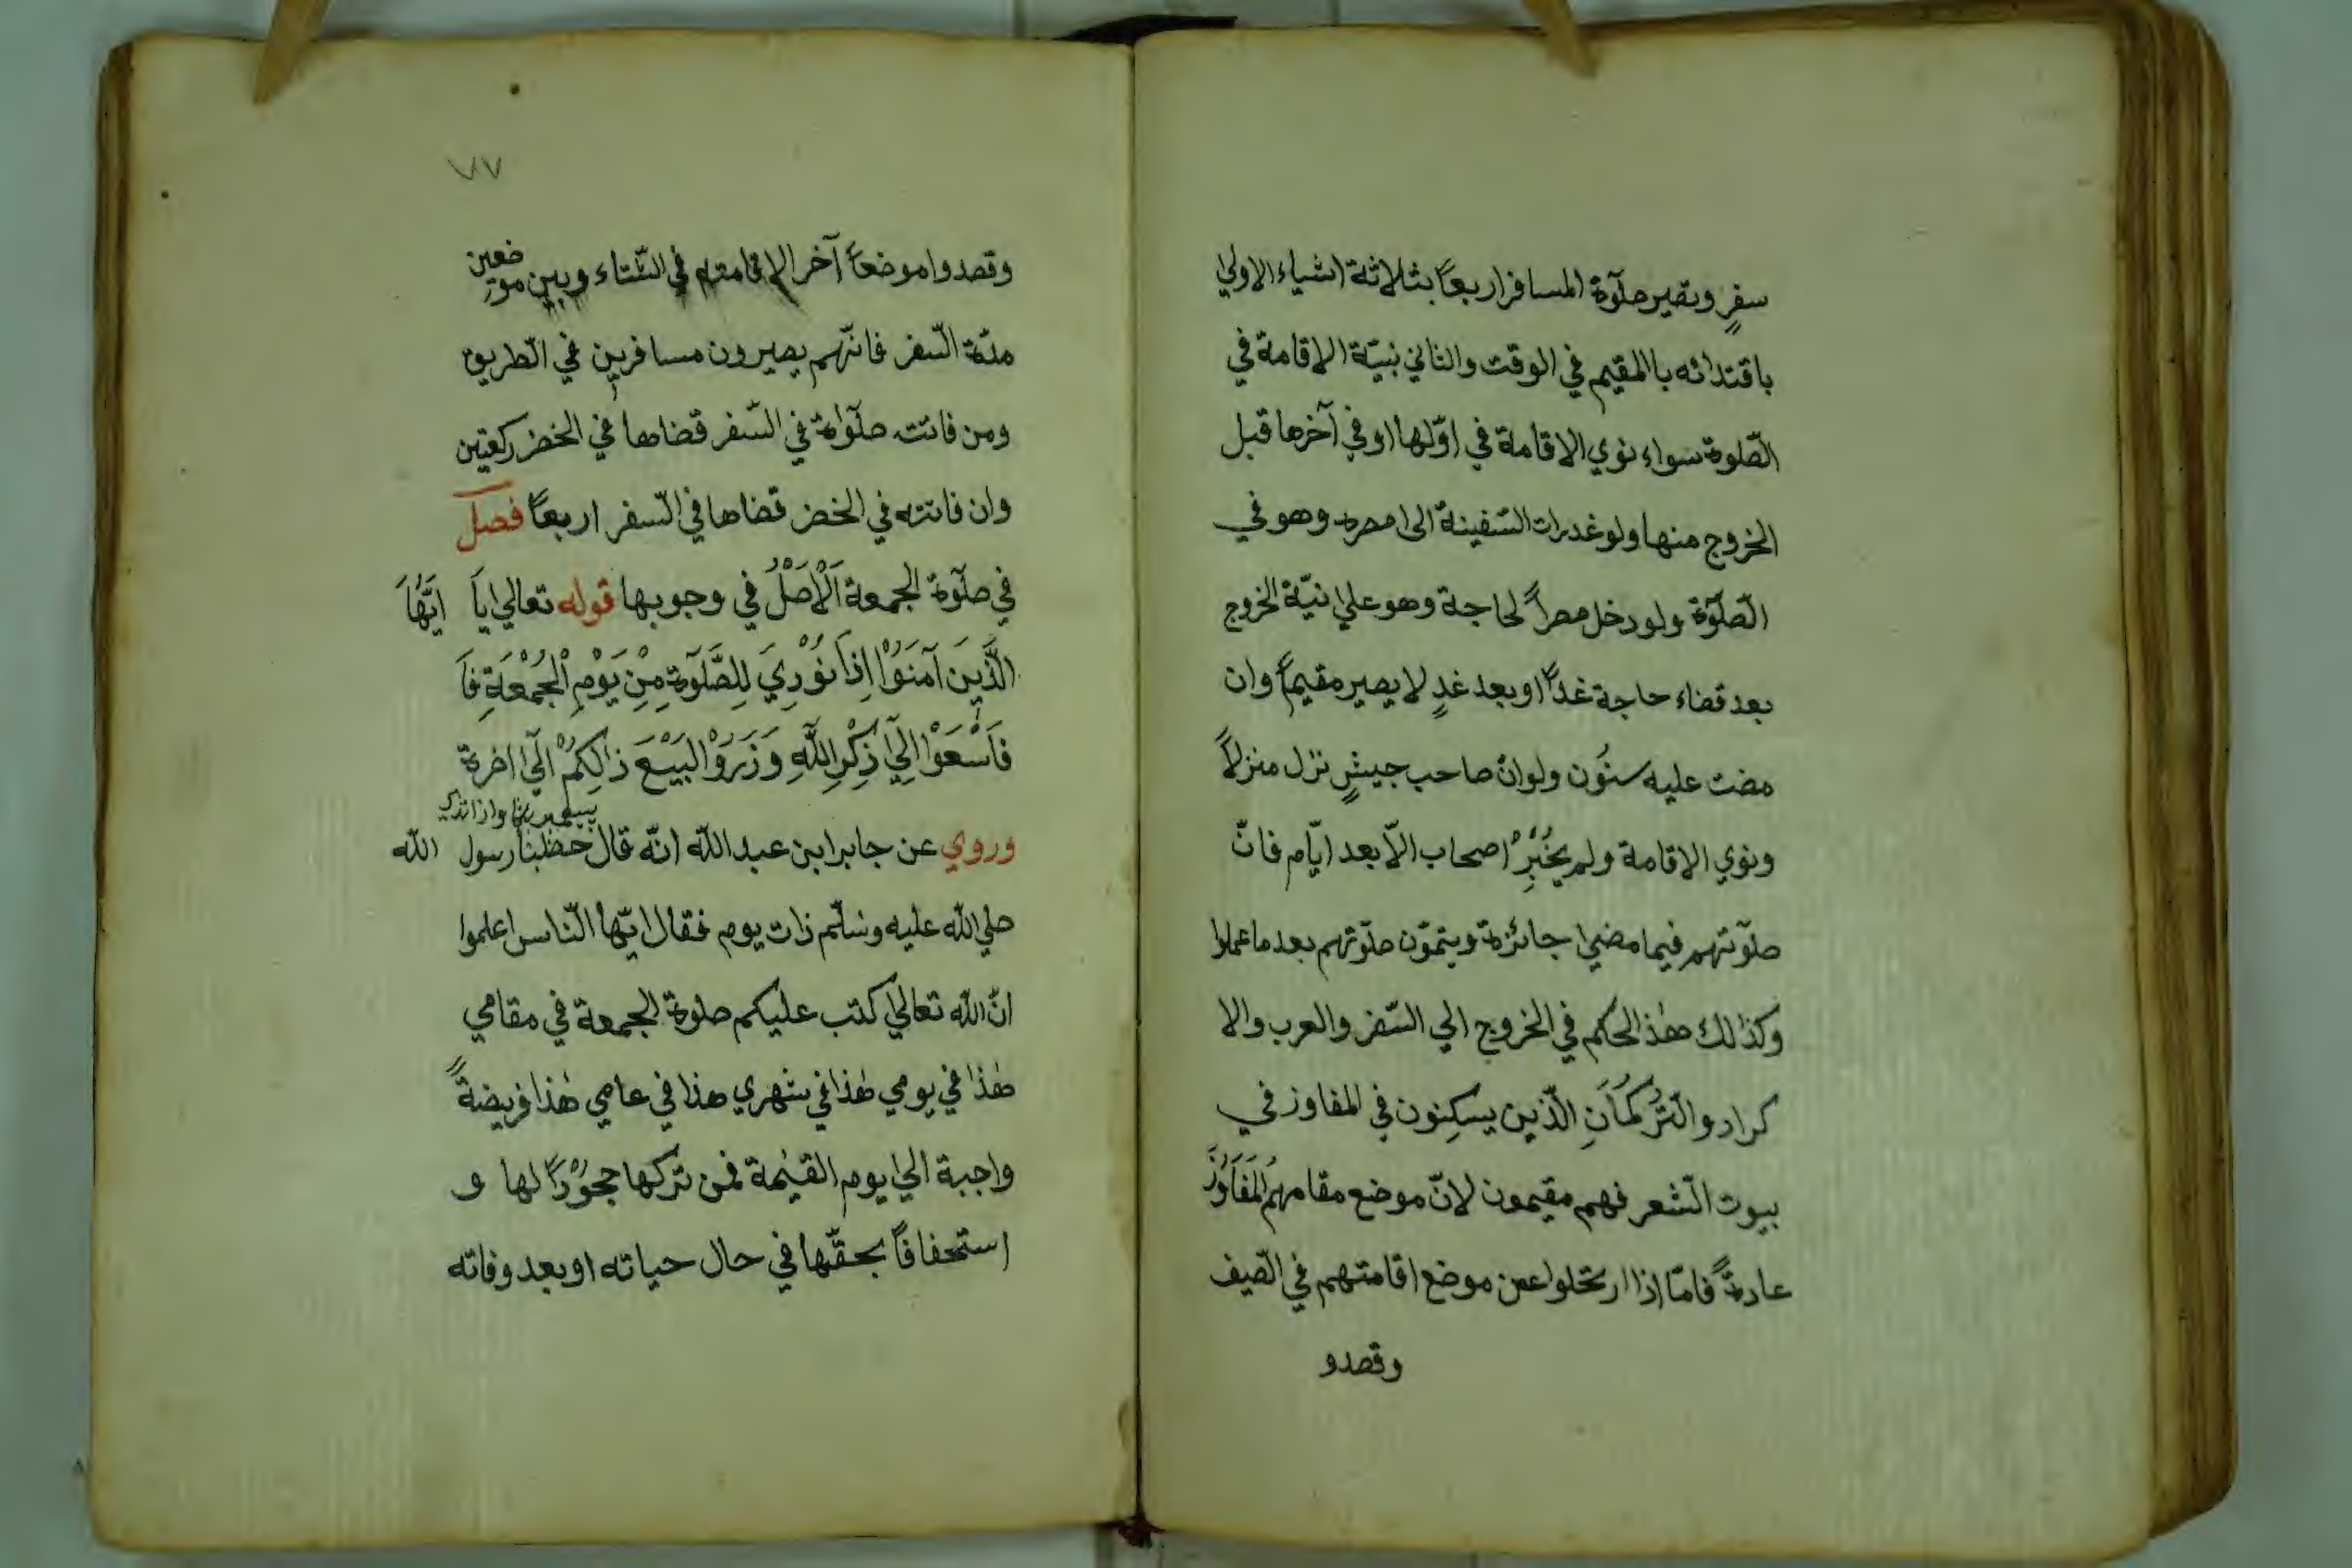 سفرٍ وتصير صلٓوة المسافر اربعاً بثلاثة اشياء الاولي
باقتدائه باالمقيم في الوقت والثاني نبيّة الاقامة في
الصّلوة سواء نوي الاقامة في اوّلها او في آخرها قبل
الخروج منها ولو غدرات السّفينة الى مصره وهو في
الصّلٓوة ولو دخل مصراً لحاجة وهو علي نيّة الخروج
بعد قضاء حاجة غداً او بعد غدٍ لا يصير مقيماً وان
مضت عليه سنُون ولو انْ صاحب جيشٍ نزل منزلاً
ونوي الاقامة ولم يُخْبِرْ اصحاب الاّ بعد ايّام فانّ
صلٓوتهم فيما مضي جائزة ويتموّن صلٓوتهم بعد ما عملوا
وكذلك هٰذ الحكم في الخروج الي السّفر والعرب والا
كراد والتُّرْكُمَانِ الّذين يسكِنون في المفاوز في
بيوت الشّعر فهم مقيمون لانّ موضع مقامهمُ الْمَفَاوُزَ
عادةً فامّا اذا ارتحلوا عن موضع اقامتهم في الصّيف
وقصدو
٧٧
وقصدوا موضعاً آخر الاقامته في الشّتاء وبين موضعين
مدّة السّفر فانّهم يصيرون مسافرين في الطريق
ومن فاتته صلٓواة في السّفر قضاها في الحضر ركعتين
وان فاتته في الخضر قضاها في السّفر اربعاً فصل
في صلٓوة الجمعة اَلْاَصْلُ في وجوبها قوله تعالي ياَ ايّهَاَ
الَّذَّينَ آمَنَوُْا اِذاَ نُوْدِيَ لِلصَّلَوٓةِ مِنْ يَوْمِ الْجُمْعَةِ فَا
فَاَسْعَوْا اِلَيٓ ذِكْرِ اللّٰهِ وَزَرَوُْا الْبَيْعَ ذالِكُمْ الَيٓ آخرة
وروي عن جابر ابن عبد اللّه انّه قال خطبنا رسول اللّه
صلي اللّه عليه وسلّم ذات يوم فقال ايّها النّاس اعلموا
انّ اللّه تعالي كتب عليكم صلوة الجمعة في مقامي
هٰذا في يومي هٰذا في شهري هذا في عامي هٰذا فريضةً
واجبة الي يوم القيٰمة فمن تركها جحوُْداً لها و
استحفافاً بحقّها في حال حياته او بعد وفاته